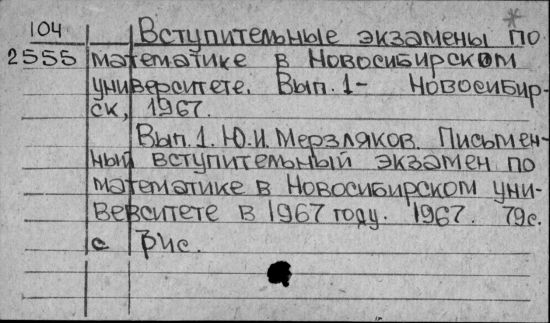 104 Вступительные экзамены по
2555 математике в Новосибирском
университете. Вып. 1- Новосибир-
ск, 1967.
Вып. 1. Ю.И. Мерзляков. Письмен-
ный вступительный экзамен по
математике в Новосибирском уни-
верситете в 1967 году. 1967. 79с.
с рис.